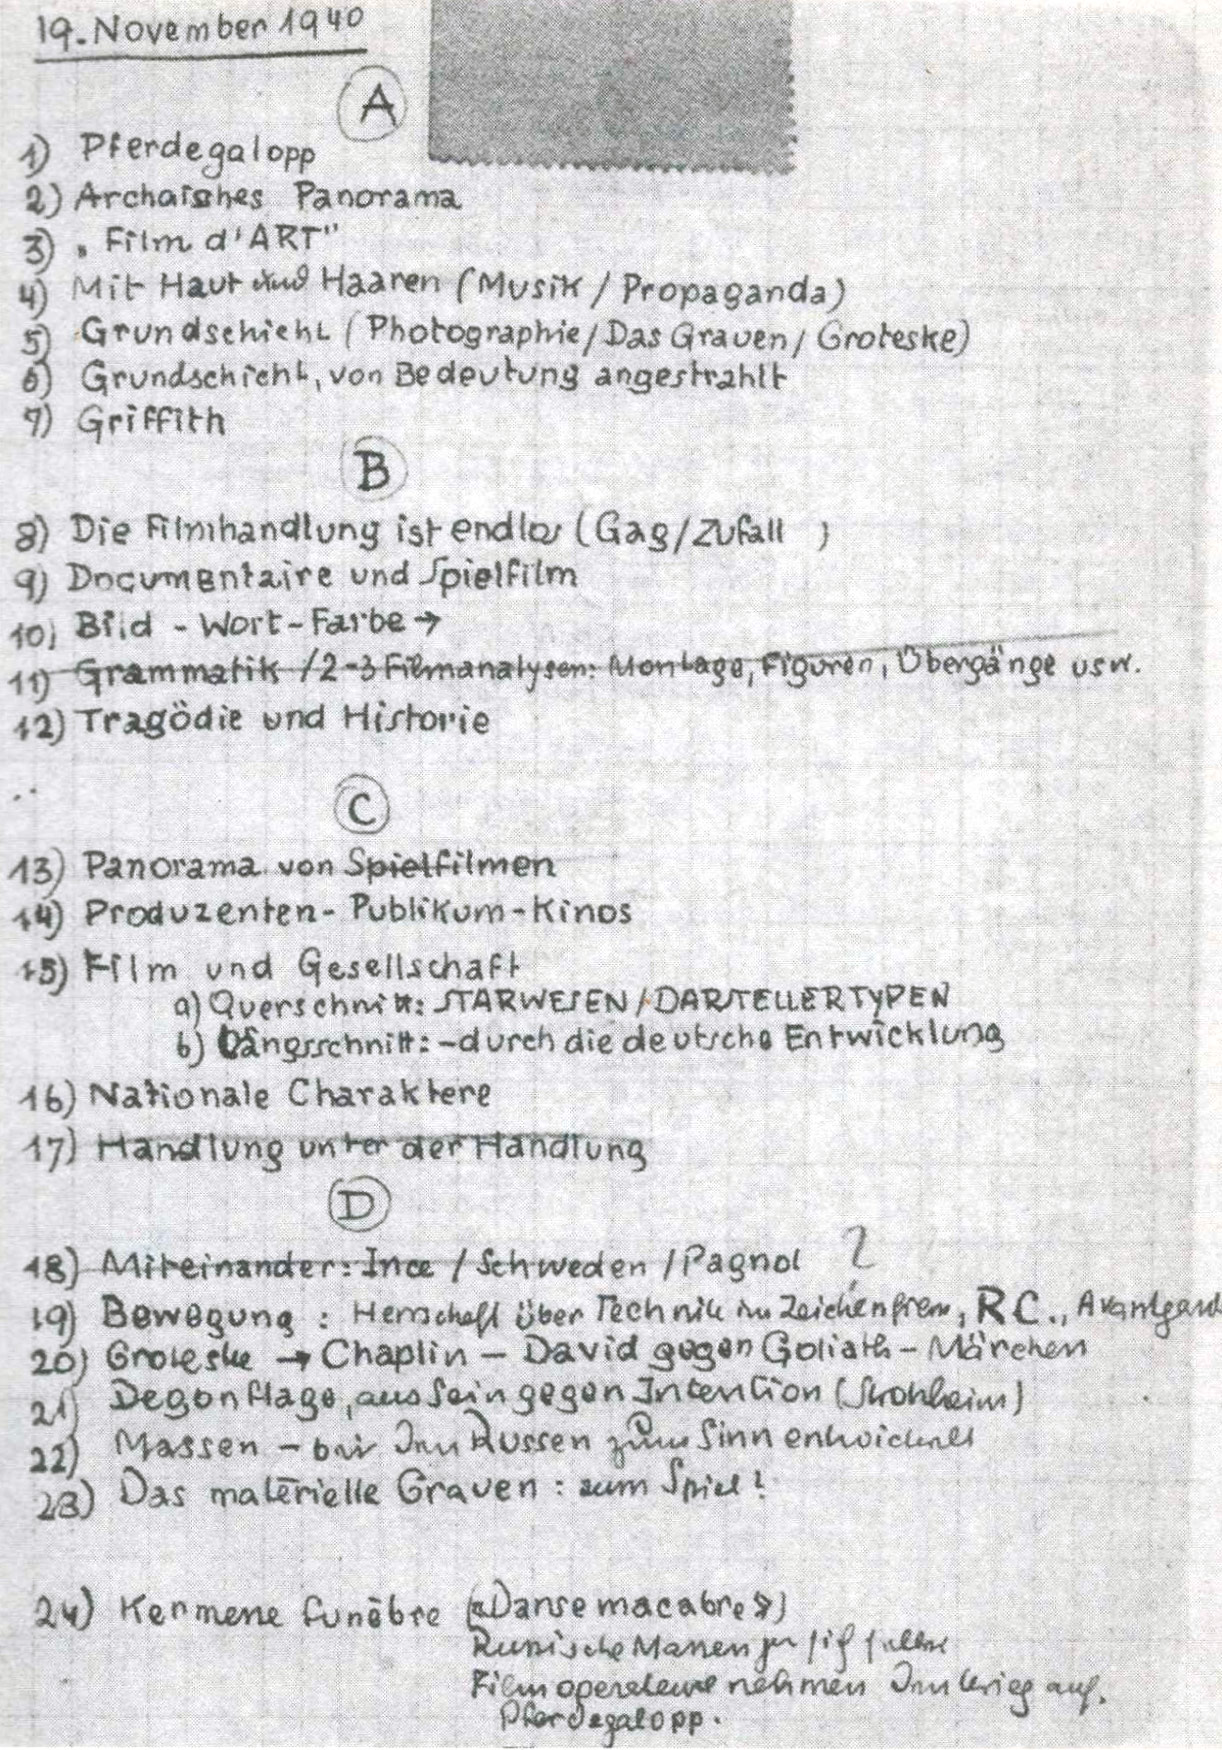 19. November 1940
A
1) Pferdegalopp
2) Archaisches Panorama
3) „Film d'ART"
4) Mit Haut und Haaren (Musik / Propaganda)
5) Grundschicht (Photographie / Das Grauen / Groteske)
6) Grundschicht, von Bedeutung angestrahlt
7) Griffith
B
8) Die Filmhandlung ist endlos (Gag / Zufall )
9) Documentaire und Spielfilm
10) Bild - Wort - Farbe →
11) Grammatik / 2-3 Filmanalysen: Montage, Figuren, Übergänge usw.
12) Tragödie und Historie
C
13) Panorama von Spielfilmen
14) Produzenten - Publikum - Kinos
15) Film und Gesellschaft
a) Querschnitt: STARWESEN / DARSTELLERTYPEN
b) Längsschnitt: - durch die deutsche Entwicklung
16) Nationale Charaktere
17) Handlung unter der Handlung
D
18) Miteinander: Ince / Schweden / Pagnol ?
19) Bewegung: Herrschaft über Technik im Zeichenfilm, R.C., Avantgard
20) Groteske → Chaplin - David gegen Goliath - Märchen
21) Degonflage, aus Sein gegen Intention (Stroheim)
22) Massen - bei den Russen zum Sinn entwickelt
23) Das materielle Grauen: zum Spiel?
24) Kermesse funèbre («Danse macabre»)
Russische Massen zu sich selber
Filmoperateure nehmen den Krieg auf.
Pferdegalopp.